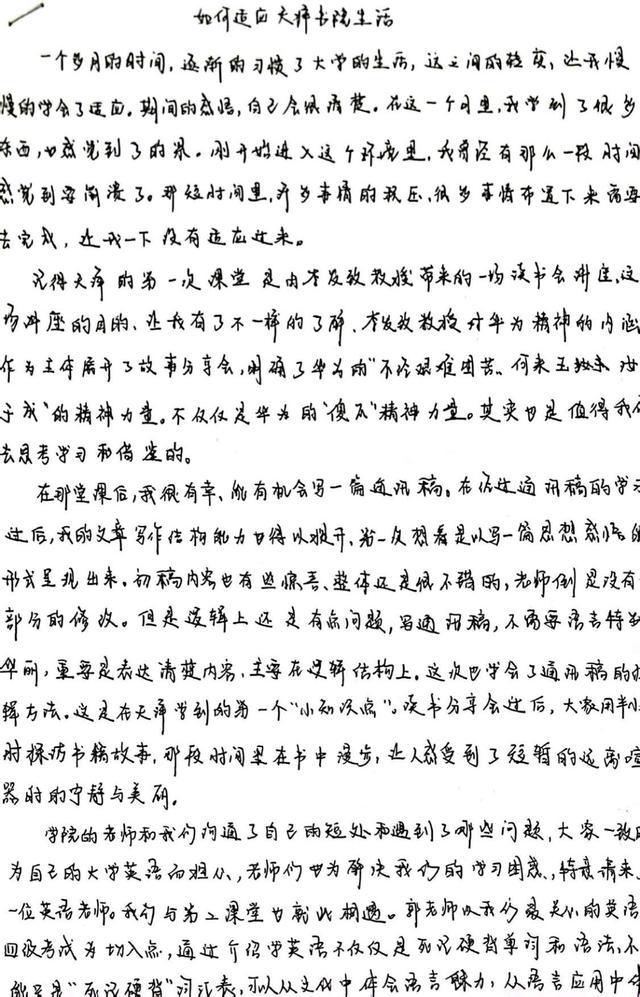 如何适应天择书院生活
一个多月的时间，逐渐的习惯了大学的生活，这之间的转变，让我慢
慢的学会了适应。期间的感悟，自己会很清楚。在这一个月里，我学到了很多
东西，也感觉到了的累。刚开始进入这个环境里，我曾经有那么一段时间
感觉到要崩溃了。那短时间里，许多事情的积压，很多事情布置下来需要
去完成，让我一下没有适应过来。
记得天择的第一次课堂是由李发致教授带来的一场读书会讲座，这
场讲座的目的，让我有了不一样的了解，李发致教授对华为精神的内涵
作为主体展开了故事分享会，明确了华为的"不经艰难困苦、何来玉 汝
于成"的精神力量。不仅仅是华为的"傻瓜"精神力量。其实也是值得我们
去思考学习和借鉴的。
在那堂课后，我很有幸、能有机会写一篇通讯稿。在历过通讯稿的学习
过后，我的文章写作结构能力也得以提升，第一次想着是以写一篇思想感悟的
形式呈现出来。初稿内容也有些惊喜、整体还是很不错的，老师倒是没有
部分的修改。但是逻辑上还是有点问题，写通讯稿，不需要语言特别
华丽，重要是表达清楚内容，主要在逻辑结构上。这次也学会了通讯稿的
辑方法。这是在天择学到的第一个"小知识点"。读书分享会过后，大家用半小
时探访书籍故事，那段时间里在书中漫步，让人感受到了短暂的远离喧
嚣时的宁静与美丽。
学院的老师和我们沟通了自己的短处和遇到了哪些问题，大家一致
为自己的大学英语而担心，老师们也为解决我们的学习困惑，特意请来
一位英语老师。我们与第二课堂也就此相遇。郭老师以我们最关心的英语
四级考试为切入点，通过介绍学英语不仅仅是死记硬背单词和语法，不
能只是"死记硬背"词汇表，可以从文化中体会语言魅力，从语言应用中